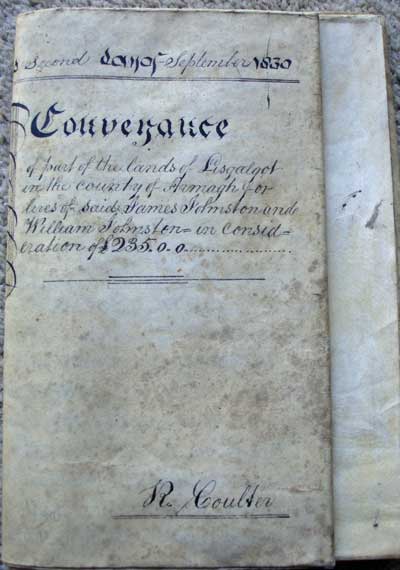 Second Day of September 1830
Conveyance
of part of the lands of Lisgalgot
in the county of Armagh for
lives of said James Johnston and
William Johnston = in consid=
eration of £235.0.0
R. Coulter